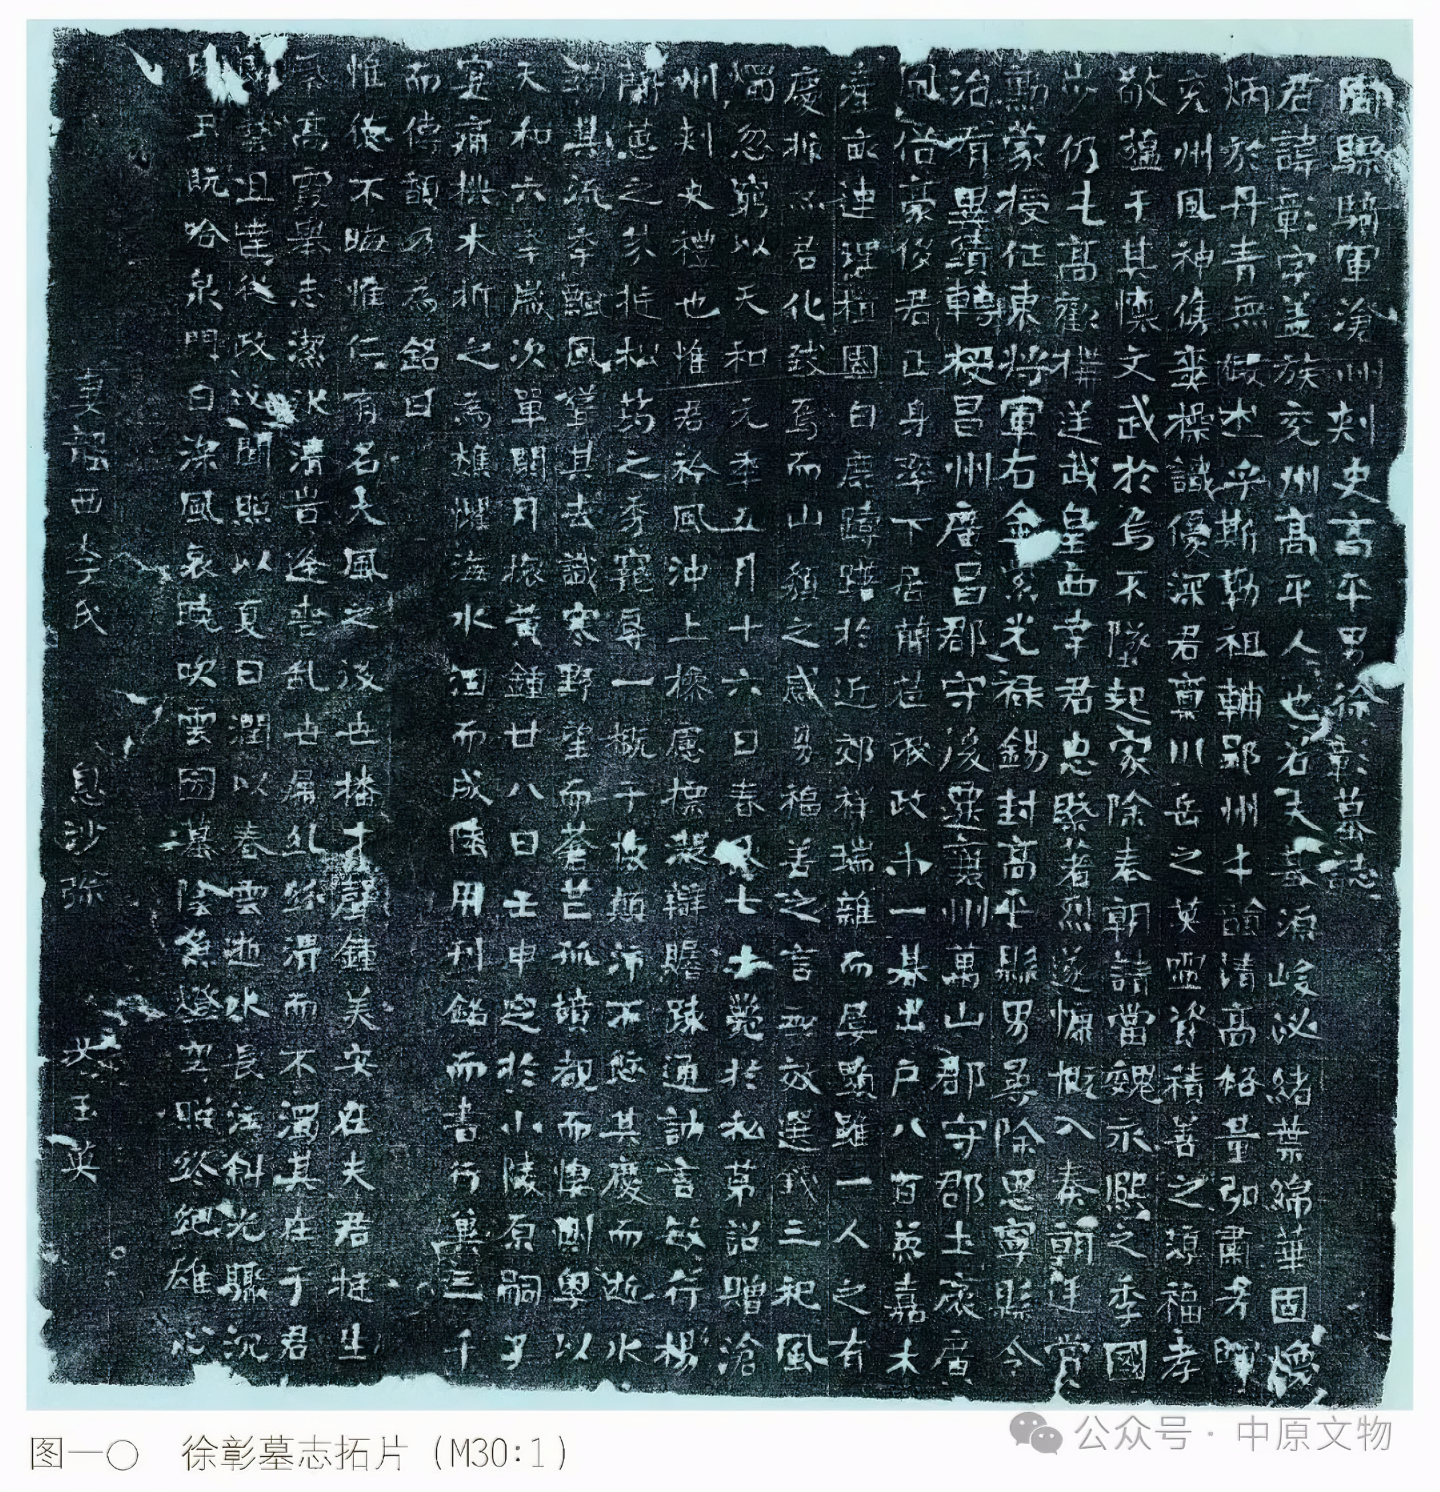 周驃騎軍滄州刾史高平男徐彰墓誌
君諱彰字盖族兖州髙平人也若夫基源峻泌緒葉綿華固懷
炳於丹青無假述乎斯勒祖輔郢州士韻清高格量弘肅考
兖州風神儁臺操識優深君稟川岳之英靈資積善之福孝
敬蘊于其懷文武於烏不墜起家除奉朝請當魏永熙之季國
步仍七髙歡構送武皇西幸君忠槩著烈遂慷慨入秦朝廷賞
勳蒙授征東將軍右金紫光祿錫封髙平縣男尋除恩寧縣令
治有異績轉授昌州廣昌郡守後遷襄州萬山郡守郡土廣
俗豪俊君正身率下居簡政未一朞出戶八百䓟嘉木
產畝連理祖園白鹿蹲踖於近郊祥瑞雜而屢顯雖一人之有
慶抑亦君化致焉而山頹之感易福善之言無效選錢三祀風
燭忽窮以天和元年五月十六日春七十薨於私第詔贈滄
州刾史禮也惟君衿風沖上懆慮摽凝辯贍疎通訥言敏行楊
蘭蕙之芬挺松筠之秀寵辱一概于懷顛沛不愆其慶而逝水
其流季風聳其去識寒野望而蒼芒孤墳覩而悽惻粵以
天和六年歲次單閼月振黄鍾廿八日壬申窆於小陵原嗣子
寔痛拱木折之為樵懼海水洄而成陸用刊銘而書行冀三千
而傳韻乃為銘曰
惟德不晦惟仁有名大風之後世播聲鍾美安在夫君挺生
氣髙霞舉志潔氷清豈逢喪乱世屬絲渭而不濁其在于君
藝且達從政汝聞照以夏日潤以春雲逝水長注斜光驟沉
玉既唅泉門白深風哀曉吹雲圖墓陰魚燈空照終絕雄心
妻隴西李氏 息沙弥 女玉英
图一〇 徐彰墓志拓片（M30:1）
公众号·中原文物